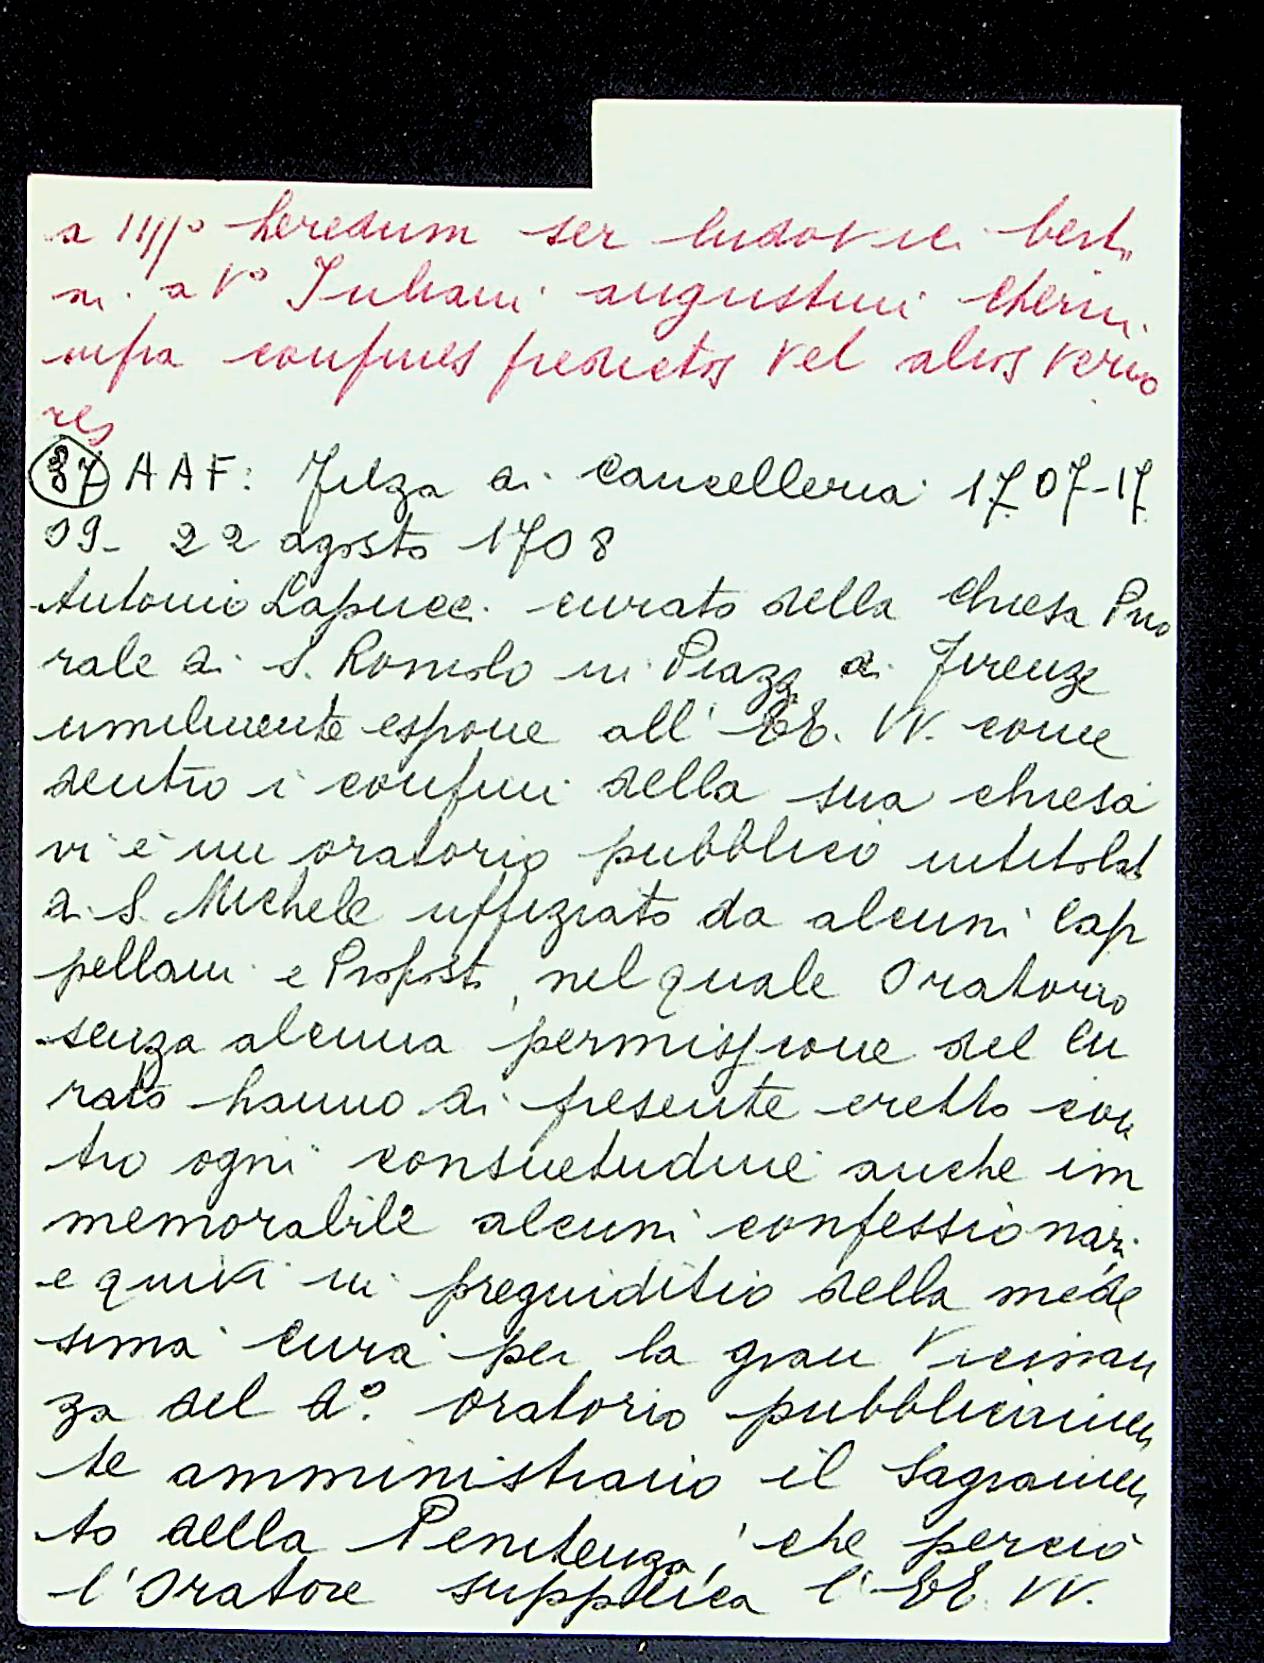 a IIIIº heredum ser ludovici berti
ni a Vº Juliani augustini cherini
infra confines predictos vel alios verio
res
87 AAF: Filza di Cancelleria 1707-17
09- 22 agosto 1708
Antonio Lapucci curato della chiesa Prio
rale di S. Romolo in Piazza di Firenze
umilmente espone all' EE. VV. come
dentro i confini della sua chiesa
vi è un oratorio pubblico intitolat
di S. Michele uffiziato da alcuni Cap
pellani e Proposti, nel quale Oratorio
senza alcuna permissione del Cu
rato hanno di presente eretto con
tro ogni consuetudine anche im
memorabile alcuni confessionari
e quivi in preguiditio della mede
sima cura per la gran Vicinan
za del dº. oratorio pubblicamen
te amministrano il Sagramen
to della Penitenza, che perciò
l'Oratore supplica l' EE. VV.